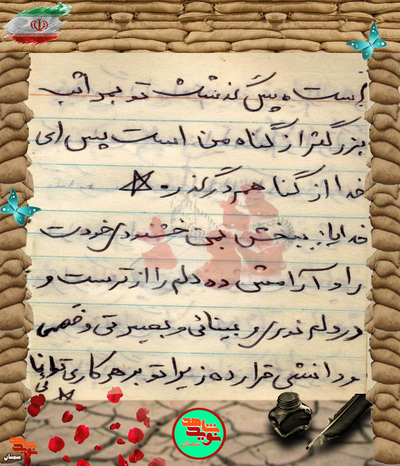 است پس گذشت تو بمراتب
بزرگتر از گناه من است پس ای
خدا از گناهم درگذر ☆
خدایا: ببخش بمن خشنودی خودت
را و آرامش ده دلم را از ترست و
در دلم نوری و بینائی و بصیرتی و فهمی
و دانشی قرار ده زیرا تو بر هر کاری توانائی
شاهد
نوید
سمنان